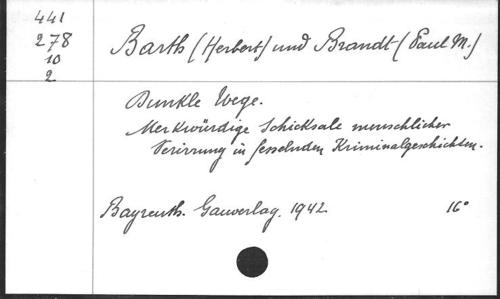 441
278
10
2
Barth (Herbert) und Brandt (Paul M.)
Dunkle Wege.
Merkwürdige Schicksale menschlicher
Verirrung in fesselnden Kriminalgeschichten.
Bayreuth. Gauverlag. 1942 16°